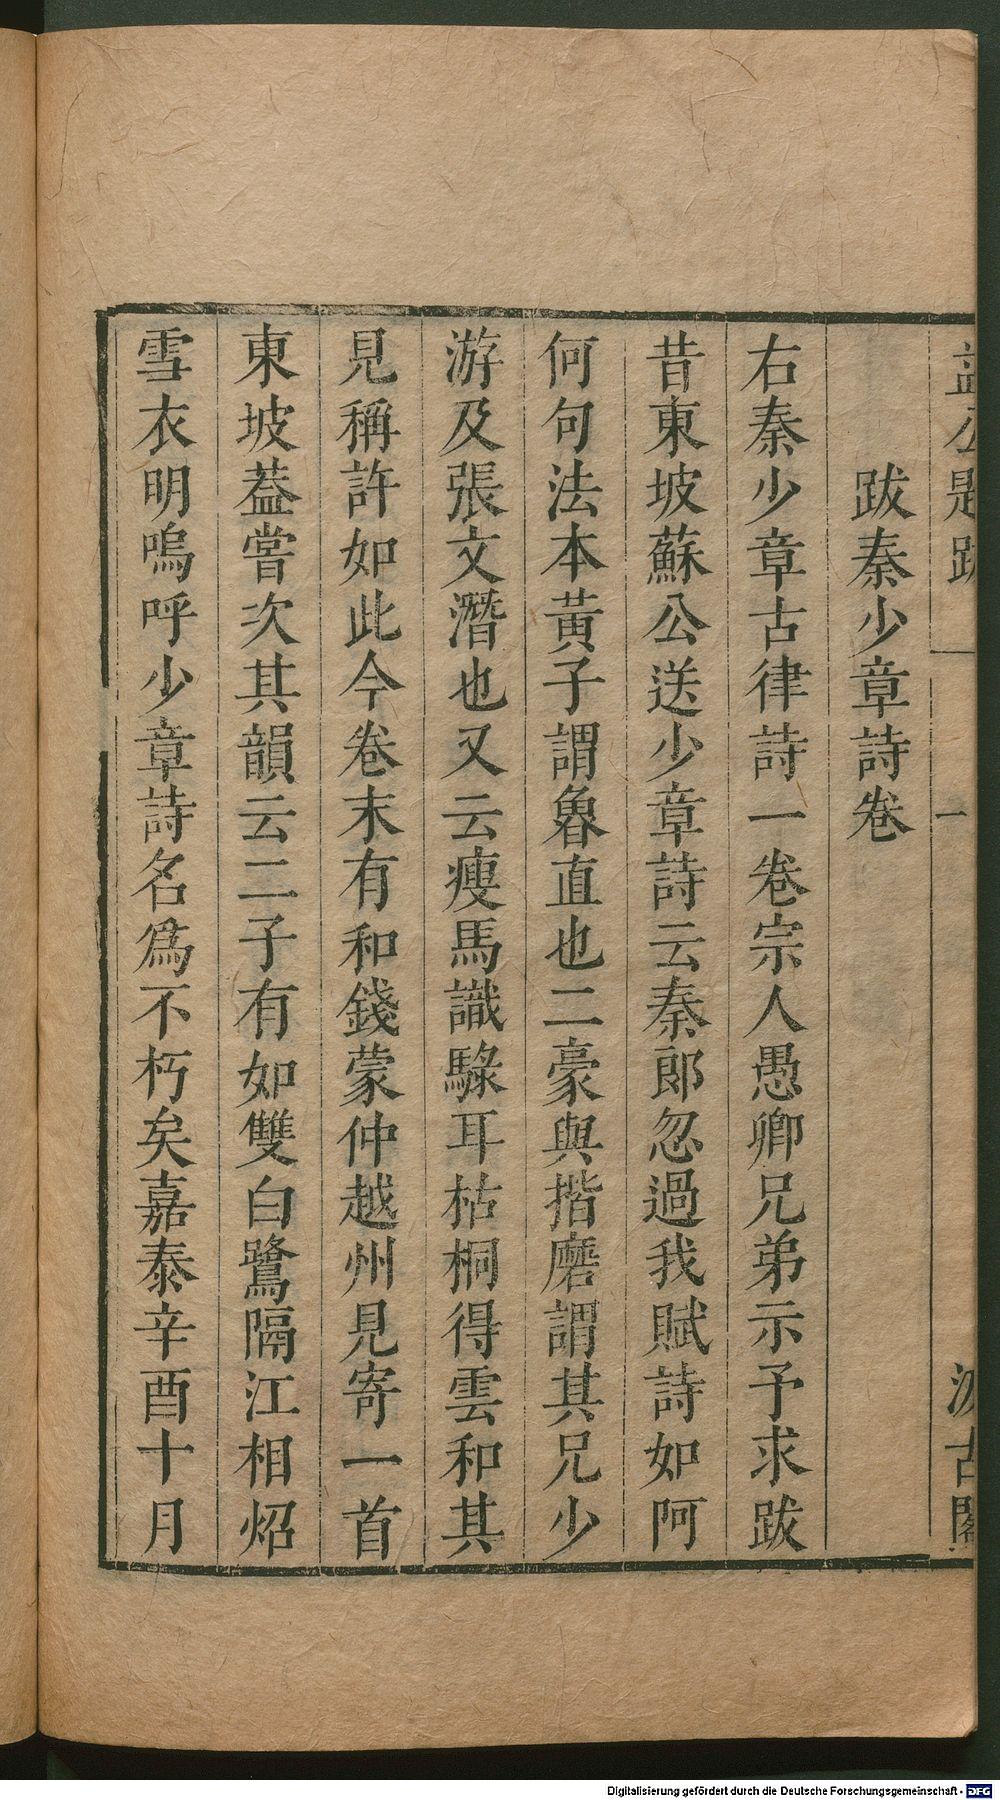 益公題跋 一 一 汲古閣
跋秦少章詩卷
右秦少章古律詩一卷宗人愚卿兄弟示予求跋
昔東坡蘇公送少章詩云秦郎忽過我賦詩如阿
何句法本黃子謂魯直也二豪與揩磨謂其兄少
游及張文潛也又云瘦馬識騄耳枯桐得雲和其
見稱許如此今卷末有和錢蒙仲越州見寄一首
東坡葢嘗次其韻云二子有如雙白鷺隔江相炤
雪衣明嗚呼少章詩名爲不朽矣嘉泰辛酉十月
Digitalisierung gefördert durch die Deutsche Forschungsgemeinschaft - DFG